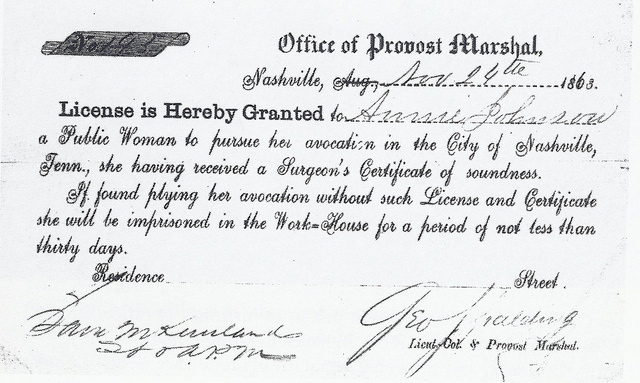 No 195
Office of Provost Marshal,
Nashville, Aug., Nov 24th 1863.
License is Hereby Granted to Annie Johnson
a Public Woman to pursue her avocation in the City of Nashville,
Tenn., she having received a Surgeon's Certificate of soundness.
If found plying her avocation without such License and Certificate
she will be imprisoned in the Work=House for a period of not less than
thirty days.
Residence Street.
Geo Spalding
Lieut-Col. & Provost Marshal.